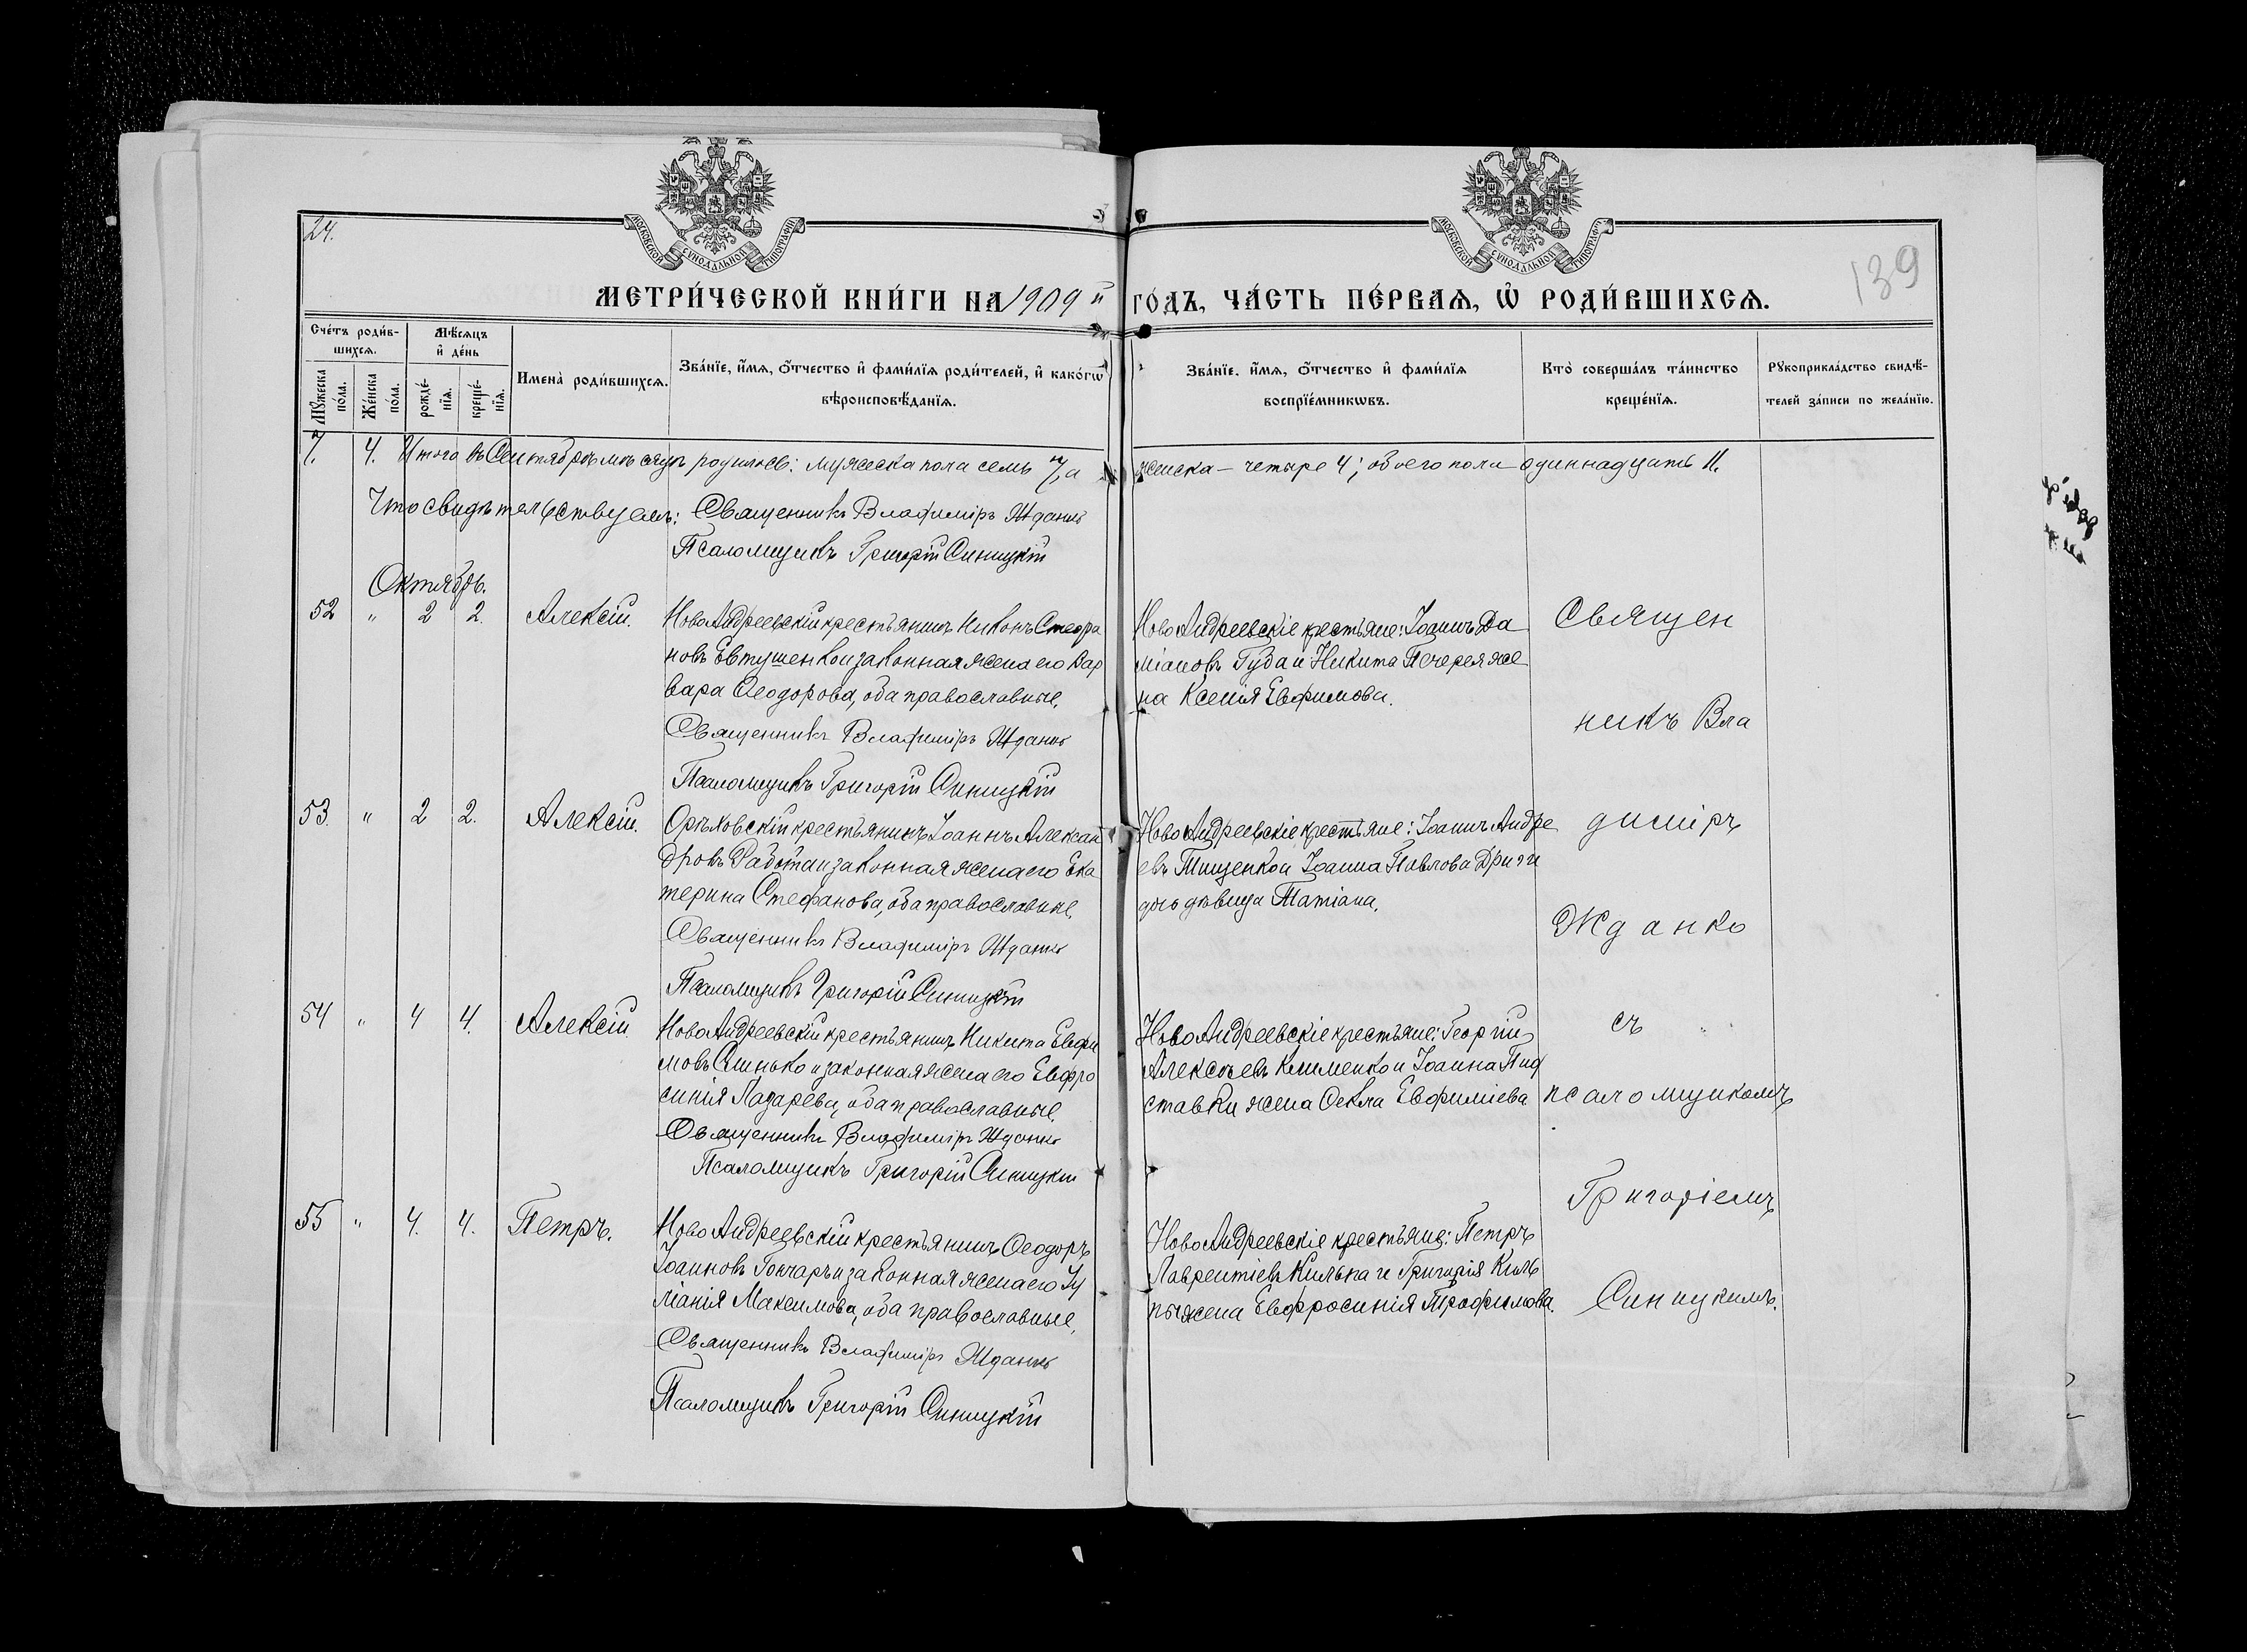 24.
МОСКОВСКОЙ СѴНОДАЛЬНОЙ ТИПОГРАФІИ
МОСКОВСКОЙ СѴНОДАЛЬНОЙ ТИПОГРАФІИ
139
МЕТРИ́ЧЕСКОЙ КНИ́ГИ НА 1909 й ГО́ДЪ, ЧА́СТЬ ПЕ́РВАѦ, Ѡ҆ РОДИ́ВШИХСѦ.
Сче́тъ роди́в-
шихсѧ.
Мꙋ́жеска по́ла.
Же́нска по́ла.
Мѣ́сѧцъ
и҆ де́нь
рожде́-
нїѧ.
креще́-
нїѧ.
Имена̀ роди́вшихсѧ.
Зва́нїе, и҆́мѧ, ѻ҆́тчество и҆ фами́лїѧ роди́телей, и҆ како́гѡ
вѣроисповѣ́данїѧ.
Зва́нїе. и҆́мѧ, ѻ҆́тчество и҆ фами́лїѧ
воспрїе́мникѡвъ.
Кто̀ соверша́лъ та́инство
креще́нїѧ.
Рꙋкоприкла́дство свидѣ́-
телей за́писи по жела́нїю.
7. 4. Итого въ Сентябрѣ мѣсяцѣ родилось: мужеска пола семь 7, а женска — четыре 4; обоего пола одиннадцать 11.
Что свидѣтельствуемъ: Священникъ Владиміръ Жданко
Псаломщикъ Григорій Синицкій
Октябрь.
52 " 2 2. Алексій.
НовоАндреевскій крестьянинъ Никонъ Стефа
новъ Евтушенко и законная жена его Вар
вара Ѳеодорова, оба православные,
Священникъ Владиміръ Жданко
Псаломщикъ Григорій Синицкій
НовоАндреевскіе крестьяне: Іоаннъ Да
міановъ Губа и Никита Печерея же
на Ксенія Евфимова.
53. " 2 2. Алексій.
Орѣховскій крестьянинъ Іоаннъ Алексан
дровъ Работа и законная жена его Ека
терина Стефанова, оба православные,
Священникъ Владиміръ Жданко
Псаломщикъ Григорій Синицкій
НовоАндреевскіе крестьяне: Іоаннъ Андре
евъ Тищенко и Іоанна Павлова Дриги
дочь дѣвица Татіана.
54 " 4 4. Алексій
НовоАндреевскій крестьянинъ Никита Евфи
мовъ Слинько и законная жена его Евфро
синія Лазарева, оба православные,
Священникъ Владиміръ Жданко
Псаломщикъ Григорій Синицкій
НовоАндреевскіе крестьяне: Георгій
Алексѣевъ Клименко и Іоанна Пид
ставки жена Ѳекла Евфиміева
55 " 4. 4. Петръ.
НовоАндреевскій крестьянинъ Ѳеодоръ
Іоанновъ Гончаръ и законная жена его Іу
ліанія Максимова, оба православные,
Священникъ Владиміръ Жданко
Псаломщикъ Григорій Синицкій
НовоАндреевскіе крестьяне: Петръ
Лаврентіевъ Кильпа и Григорія Киль
пы жена Евфросинія Трофимова.
Священ
никъ Вла
диміръ
Жданко
съ
псаломщикомъ
Григоріемъ
Синицкимъ.